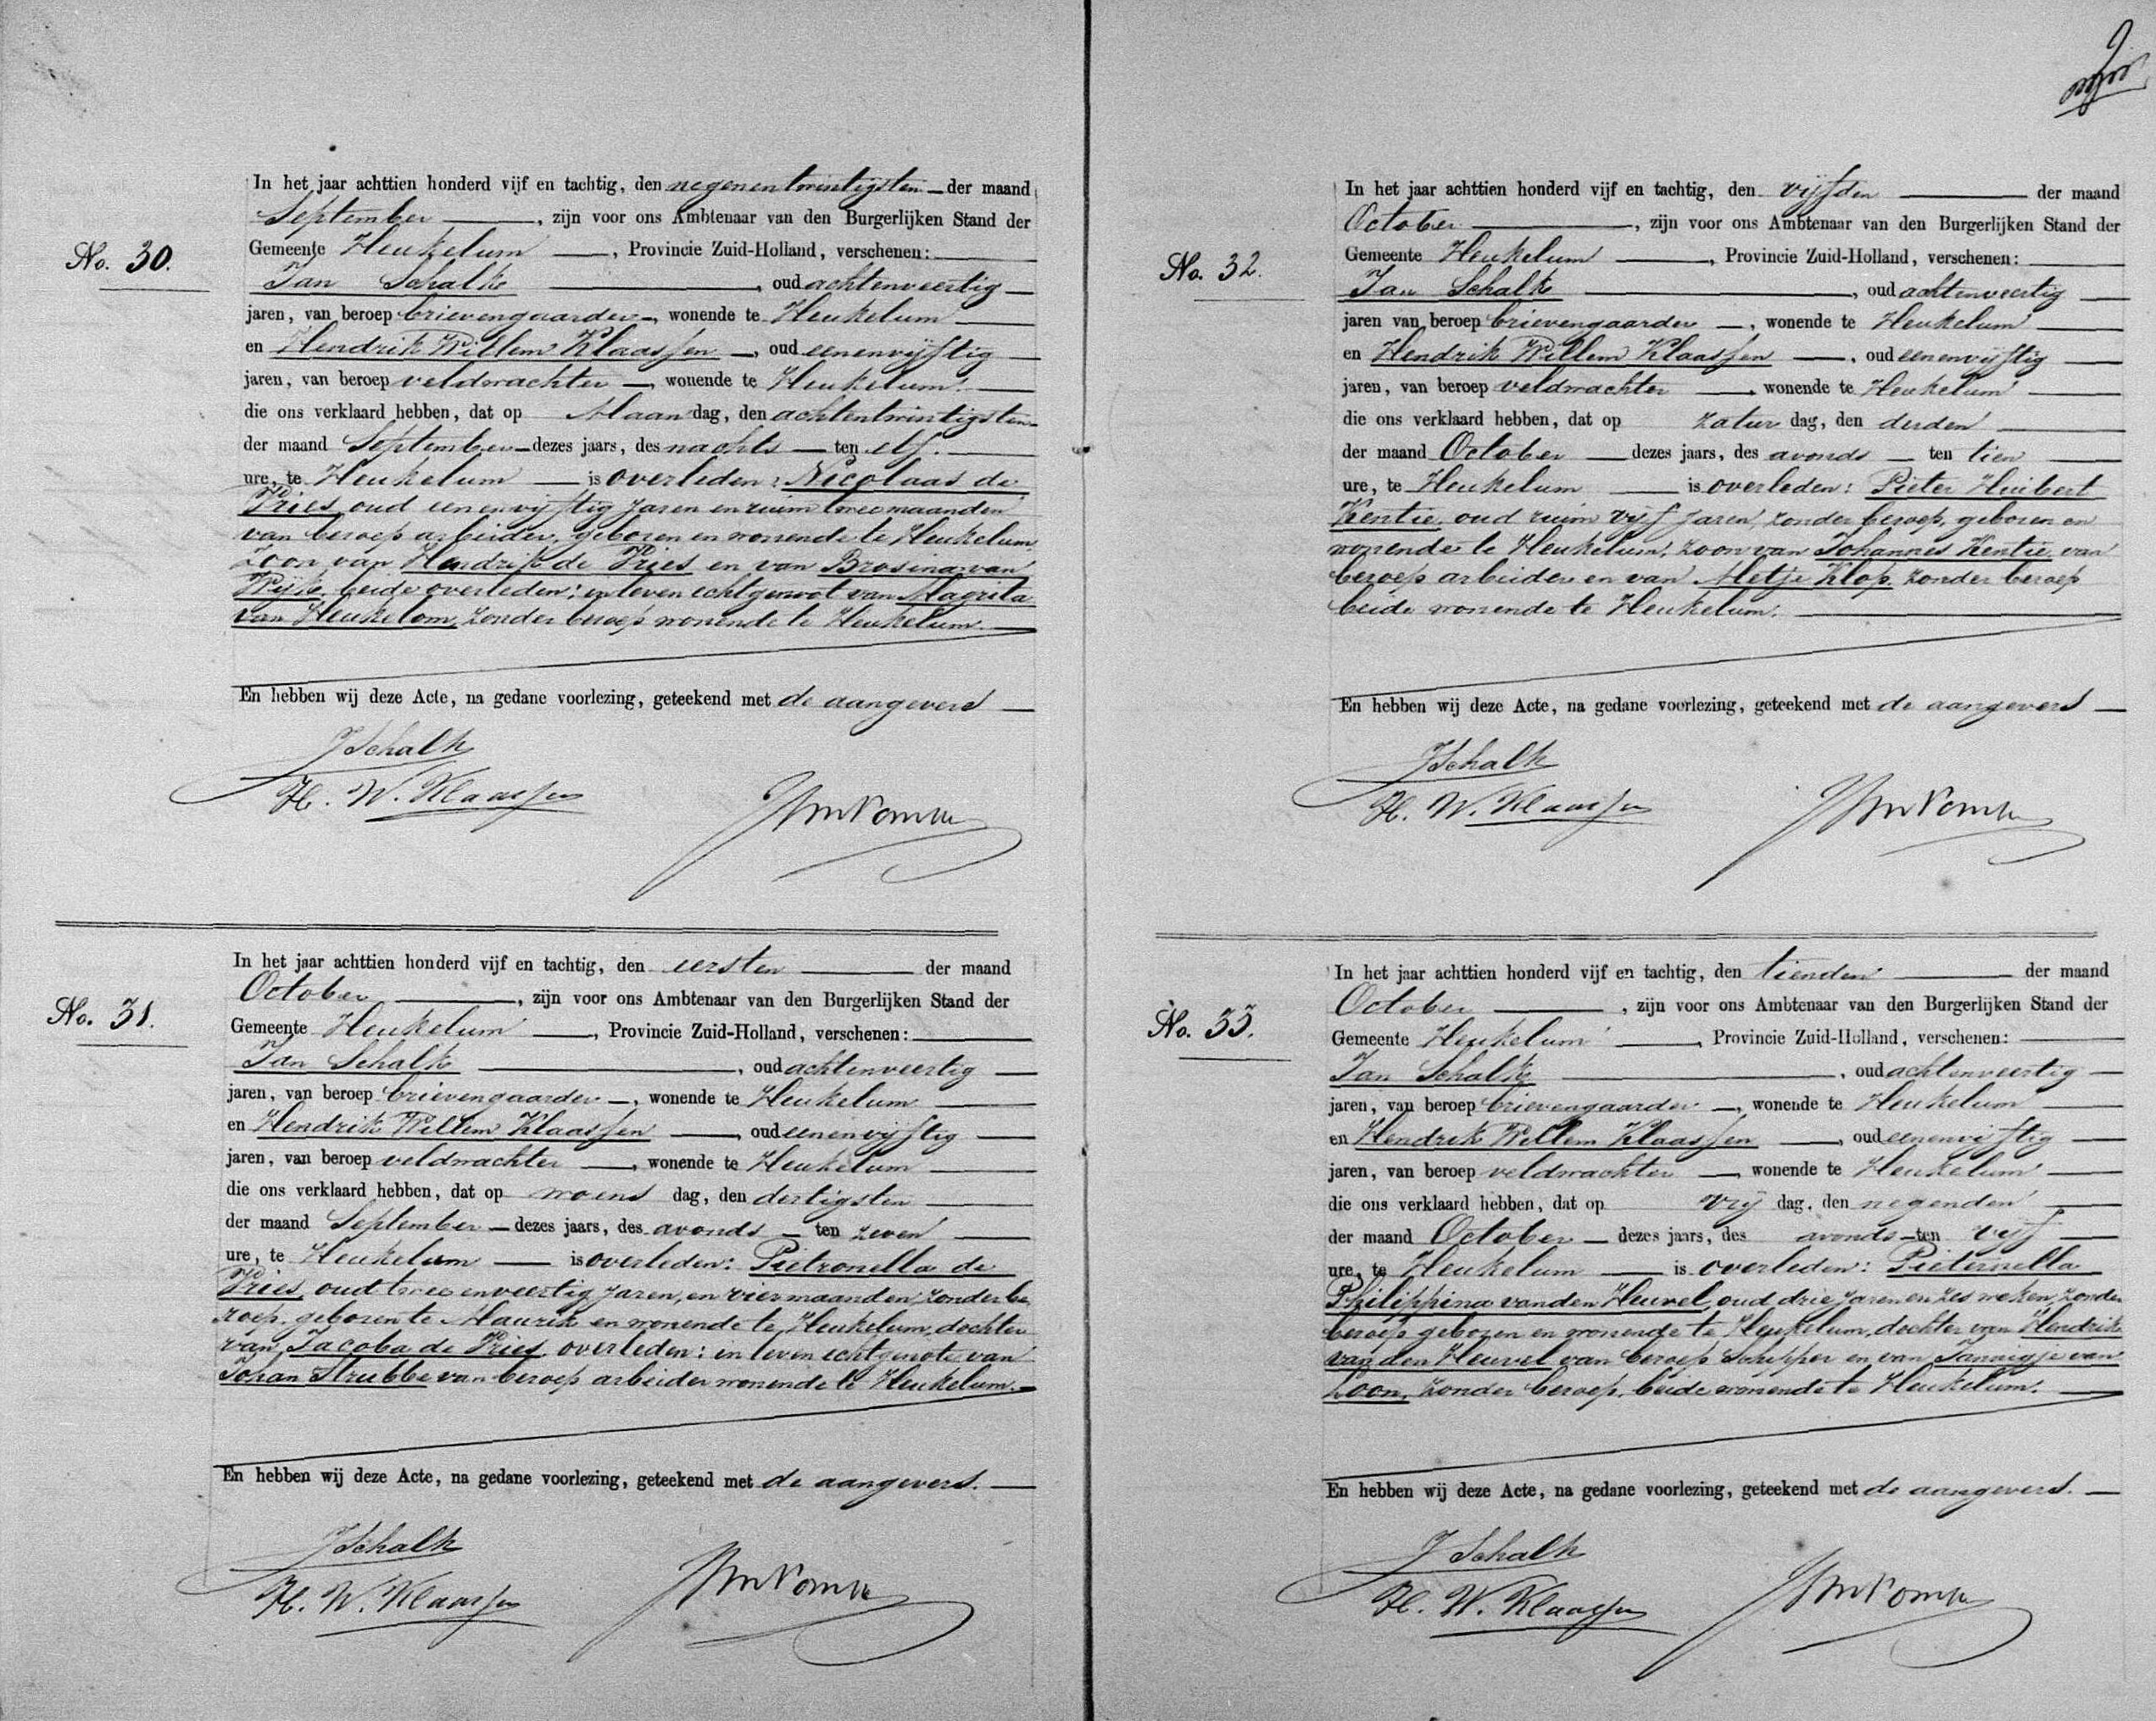 No. 30.
In het jaar achttien honderd vijf en tachtig, den negenentwintigsten der maand
September, zijn voor ons Ambtenaar van den Burgerlijken Stand der
Gemeente Heukelum, Provincie Zuid-Holland, verschenen:
Jan Schalk, oud achtenveertig
jaren, van beroep brievengaarder, wonende te Heukelum
en Hendrik Willem Klaassen, oud eenenvijftig
jaren, van beroep veldwachter, wonende te Heukelum
die ons verklaard hebben, dat op Maandag, den achtentwintigsten
der maand September dezes jaars, des nachts ten elf
ure, te Heukelum is overleden: Nicolaas de
Vries, oud eenenvijftig jaren en ruim twee maanden
van beroep arbeider, geboren en wonende te Heukelum
zoon van Hendrik de Vries en van Brosina van
Wijk, beide overleden; in leven echtgenoot van Magrita
van Heukelom, zonder beroep wonende te Heukelum.
En hebben wij deze Acte, na gedane voorlezing, geteekend met de aangevers
J Schalk
H. W. Klaassen
No. 31.
In het jaar achttien honderd vijf en tachtig, den eersten der maand
October, zijn voor ons Ambtenaar van den Burgerlijken Stand der
Gemeente Heukelum, Provincie Zuid-Holland, verschenen:
Jan Schalk, oud achtenveertig
jaren, van beroep brievengaarder, wonende te Heukelum
en Hendrik Willem Klaassen, oud eenenvijftig
jaren, van beroep veldwachter, wonende te Heukelum
die ons verklaard hebben, dat op woens dag, den dertigsten
der maand September dezes jaars, des avonds ten zeven
ure, te Heukelum is overleden: Pietronella de
Vries, oud twee enveertig jaren, en vier maanden, zonder be
roep, geboren te Maurik en wonende te Heukelum, dochter
van Jacoba de Vries, overleden: in leven echtgenote van
Johan Strubbe van beroep arbeider wonende te Heukelum.
En hebben wij deze Acte, na gedane voorlezing, geteekend met de aangevers.
J Schalk
H. W. Klaassen
No. 32.
In het jaar achttien honderd vijf en tachtig, den vijfden der maand
October, zijn voor ons Ambtenaar van den Burgerlijken Stand der
Gemeente Heukelum, Provincie Zuid-Holland, verschenen:
Jan Schalk, oud achtenveertig
jaren van beroep brievengaarder, wonende te Heukelum
en Hendrik Willem Klaassen, oud eenenvijftig
jaren, van beroep veldwachter, wonende te Heukelum
die ons verklaard hebben, dat op zatur dag, den derden
der maand October dezes jaars, des avonds ten tien
ure, te Heukelum is overleden: Pieter Huibert
Kentie, oud ruim vijf jaren, zonder beroep, geboren en
wonende te Heukelum, zoon van Johannes Kentie van
beroep arbeider en van Metje Klop, zonder beroep
beide wonende te Heukelum.
En hebben wij deze Acte, na gedane voorlezing, geteekend met de aangevers
J Schalk
H. W. Klaassen
No. 33.
In het jaar achttien honderd vijf en tachtig, den tienden der maand
October, zijn voor ons Ambtenaar van den Burgerlijken Stand der
Gemeente Heukelum, Provincie Zuid-Holland, verschenen:
Jan Schalk, oud achtenveertig
jaren, van beroep brievengaarder, wonende te Heukelum
en Hendrik Willem Klaassen, oud eenenvijftig
jaren, van beroep veldwachter, wonende te Heukelum
die ons verklaard hebben, dat op vrij dag, den negenden
der maand October dezes jaars, des avonds ten vijf
ure, te Heukelum is overleden: Pieternella
Philippina van den Heuvel, oud drie jaren en zes weken, zonder
beroep geboren en wonende te Heukelum, dochter van Hendrik
van den Heuvel van beroep Schipper en van Jannigje van
Loon, zonder beroep, beide wonende te Heukelum.
En hebben wij deze Acte, na gedane voorlezing, geteekend met de aangevers.
J Schalk
H. W. Klaassen